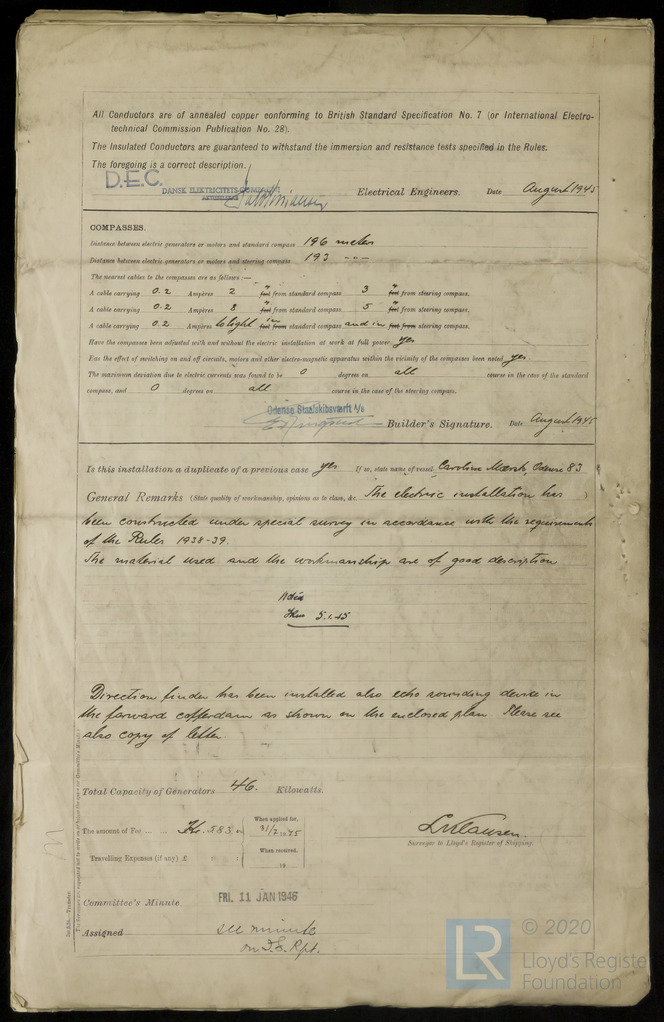 All Conductors are of annealed copper conforming to British Standard Specification No. 7 (or International Electro-
technical Commission Publication No. 28).
The Insulated Conductors are guaranteed to withstand the immersion and resistance tests specified in the Rules.
The foregoing is a correct description.
D.E.C.
DANSK ELEKTRICITETS-COMPAGNI
AKTIESELSKAB
Electrical Engineers. Date August 1945
COMPASSES.
Distance between electric generators or motors and standard compass 196 meter
Distance between electric generators or motors and steering compass 193 -"-
The nearest cables to the compasses are as follows:—
A cable carrying 0.2 Ampères 2 " feet from standard compass 3 " feet from steering compass.
A cable carrying 0.2 Ampères 8 " feet from standard compass 5 " feet from steering compass.
A cable carrying 0.2 Ampères to light in feet from standard compass and in feet from steering compass.
Have the compasses been adjusted with and without the electric installation at work at full power yes
Has the effect of switching on and off circuits, motors and other electro-magnetic apparatus within the vicinity of the compasses been noted yes
The maximum deviation due to electric currents was found to be 0 degrees on all course in the case of the standard
compass, and 0 degrees on all course in the case of the steering compass.
Odense Staalskibsværft A/S
Builder's Signature. Date August 1945
Is this installation a duplicate of a previous case yes If so, state name of vessel Caroline Mærsk, Odense 83
General Remarks (State quality of workmanship, opinions as to class, &c. The electric installation has )
been constructed under special survey in accordance with the requirements
of the Rules 1938-39.
The material used and the workmanship are of good description
5.1.45
Direction finder has been installed also echo sounding device in
the forward cofferdam as shown on the enclosed plan. Please see
also copy of letter.
Total Capacity of Generators 46. Kilowatts.
The amount of Fee ... ... Kr. 583
When applied for,
31/7 1945
When received,
19
Travelling Expenses (if any) £ : :
Surveyor to Lloyd's Register of Shipping.
Committee's Minute FRI. 11 JAN 1946
Assigned see minute
on F.E. Rpt.
LR
© 2020
Lloyd's Registe
Foundation